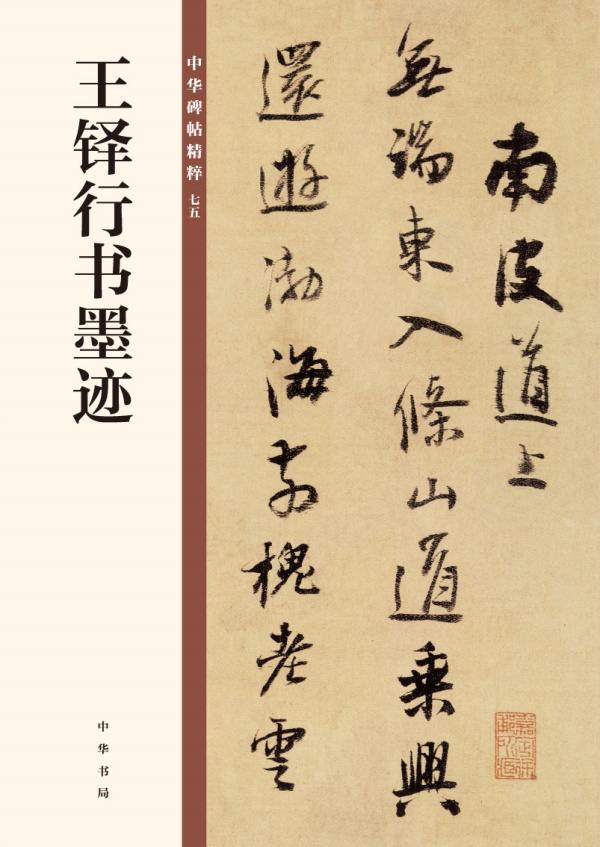 王铎行书墨迹
中华书局
中华碑帖精粹 七五
南皮道上
無端東入條山道乘興
還遊渤海 槐老雲